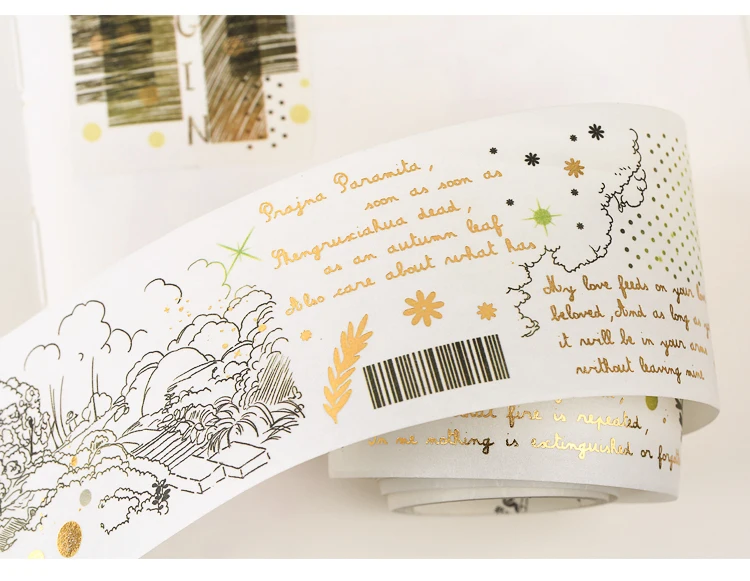 G
I
N
Prajna Paramita,
soon as soon as
Shengruxiahua dead,
as an autumn leaf
Also care about what has
My love feeds on your
beloved, And as long as
it will be in your arms
without leaving mine
fire is repeated,
in me nothing is extinguished or